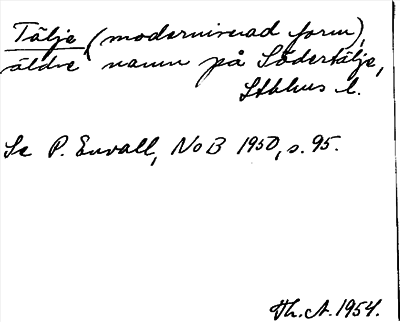 Tälje (moderniserad form),
äldre namn på Södertälje,
Sthlms l.
Se P. Envall, NoB 1950, s. 95.
Th. A. 1954.